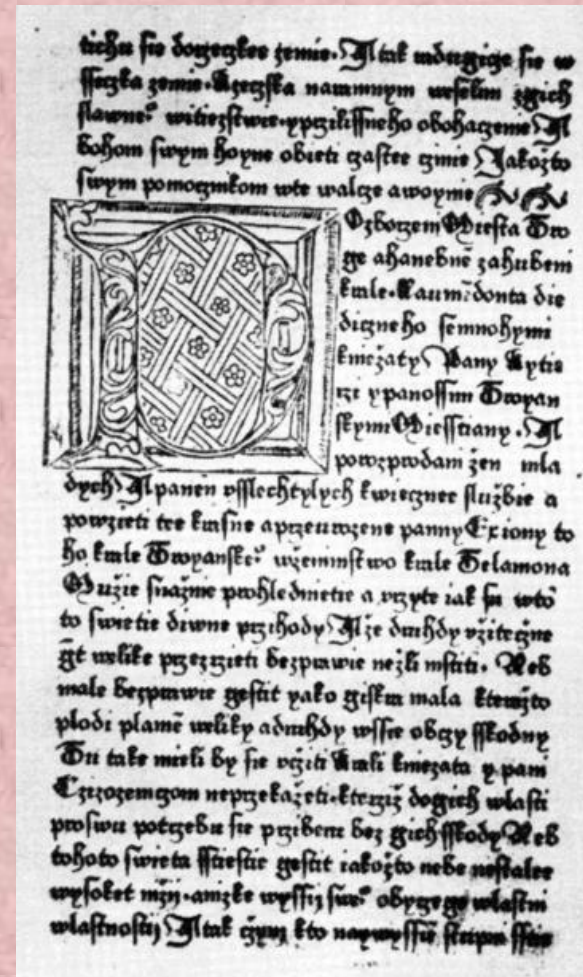 tichu sie dorzeczkee zemie. A tak wdrugige sie w
ssiczka zemie. Rzeczska naramnym weselim zgich
slawne° witiezstwie. ypczilissneho obohaczenie A
bohom swym hoyne obieti czastee czinie Jakozto
swym pomocznikom wte walcze awoynie
Ozborzem Miesta Tro
ge ahanebne zahubeni
krale. die
diczneho semnohymi
kniezaty Pany Rytie
rzi ypanossim Troyan
skymi Miessciany. A
poroz prodani zen mla
dych A panen vsslechtylych kwiecznee sluzbie a
powzieti tee krasne aprzeurozene panny Exiony to
ho krale Troyanske° wzeninstwo krale Thelamona
Muzie snazme prohledmetie a vrzyte iak su wto
to swietie diwne przihody A ze druhdy vziteczne
gt welike przezrzieti bezprawie nezli mstiti. Neb
male bezprawie gestit yako giskra mala kterazto
plodi plame weliky adruhdy wssie obczy sskodny
Tu take mieli by sie vcziti Krali kniezata y pani
Czizozemczom neprzekazeti. kterziz dogich wlasti
proswu potrzebu sie przibeni bez gich sskody Neb
tohoto swieta sstiestie gestit iakozto nebe nestalee
wysoket mizi. anizke wyssij swe° obyczege wlastni
wlastnostij A tak czym kto naywyssie stupm sstie